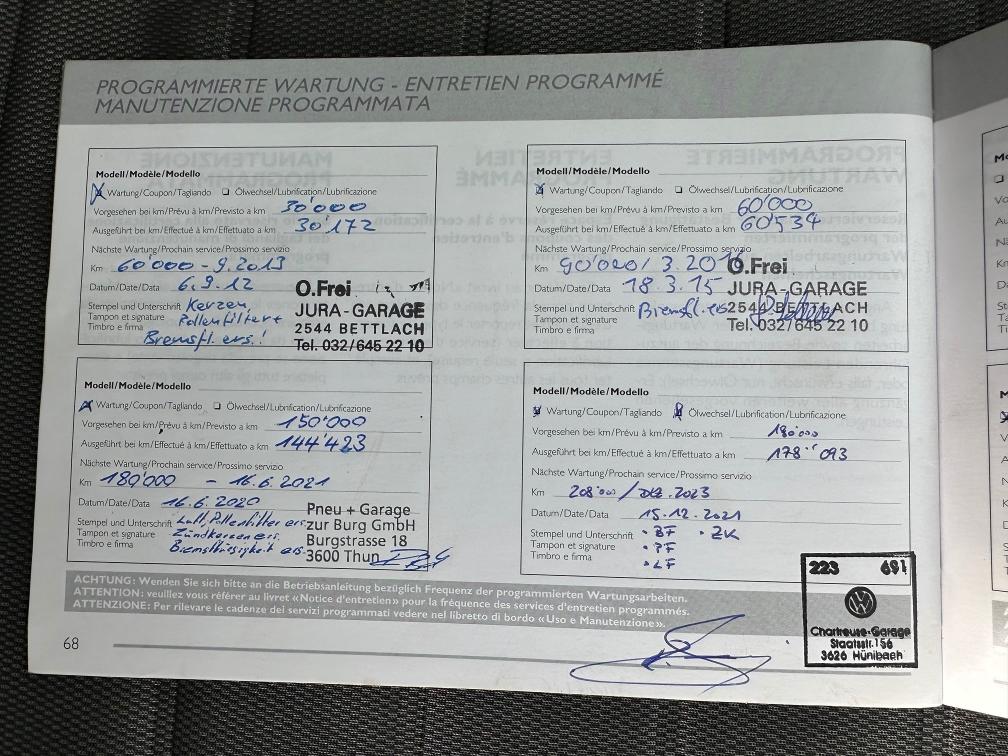 PROGRAMMIERTE WARTUNG - ENTRETIEN PROGRAMMÉ
MANUTENZIONE PROGRAMMATA
Modell/Modèle/Modello
Wartung/Coupon/Tagliando Ölwechsel/Lubrification/Lubrificazione
Vorgesehen bei km/Prévu à km/Previsto a km 30'000
Ausgeführt bei km/Effectué à km/Effettuato a km 30'172
Nächste Wartung/Prochain service/Prossimo servizio
Km 60'000 - 9.2013
Datum/Date/Data 6.9.12
Stempel und Unterschrift Kerzen,
Tampon et signature Pollenfilter +
Timbro e firma Bremsfl. ers.!
O.Frei
JURA-GARAGE
2544 BETTLACH
Tel. 032/645 22 10
Modell/Modèle/Modello
Wartung/Coupon/Tagliando Ölwechsel/Lubrification/Lubrificazione
Vorgesehen bei km/Prévu à km/Previsto a km 60'000
Ausgeführt bei km/Effectué à km/Effettuato a km 60'534
Nächste Wartung/Prochain service/Prossimo servizio
Km 90'000/ 3.2016
Datum/Date/Data 18.3.15
Stempel und Unterschrift Bremsfl. ers
Tampon et signature
Timbro e firma
O.Frei
JURA-GARAGE
2544 BETTLACH
Tel. 032/645 22 10
Modell/Modèle/Modello
Wartung/Coupon/Tagliando Ölwechsel/Lubrification/Lubrificazione
Vorgesehen bei km/Prévu à km/Previsto a km 150'000
Ausgeführt bei km/Effectué à km/Effettuato a km 144'423
Nächste Wartung/Prochain service/Prossimo servizio
Km 180'000 - 16.6.2021
Datum/Date/Data 16.6.2020
Stempel und Unterschrift Luft, Pollenfilter ers
Tampon et signature Zündkerzen ers.
Timbro e firma Bremsflüssigkeit ers.
Pneu + Garage
zur Burg GmbH
Burgstrasse 18
3600 Thun
Modell/Modèle/Modello
Wartung/Coupon/Tagliando Ölwechsel/Lubrification/Lubrificazione
Vorgesehen bei km/Prévu à km/Previsto a km 180'000
Ausgeführt bei km/Effectué à km/Effettuato a km 178'093
Nächste Wartung/Prochain service/Prossimo servizio
Km 208'000 / Dez. 2023
Datum/Date/Data 15.12.2021
Stempel und Unterschrift • BF • ZK
Tampon et signature • PF
Timbro e firma • LF
223 691
Chartreuse-Garage
Staatsstr. 156
3626 Hünibach
ACHTUNG: Wenden Sie sich bitte an die Betriebsanleitung bezüglich Frequenz der programmierten Wartungsarbeiten.
ATTENTION: veuillez vous référer au livret «Notice d'entretien» pour la fréquence des services d'entretien programmés.
ATTENZIONE: Per rilevare le cadenze dei servizi programmati vedere nel libretto di bordo «Uso e Manutenzione».
68